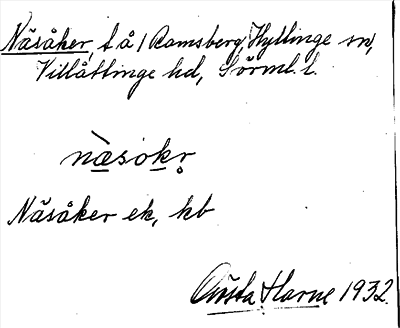 Näsåker, t å / Ramsberg, Hyllinge sn,
Villåttinge hd, Sörml. l.
næsokr̥
Näsåker ek, kb
Gösta Harne 1932